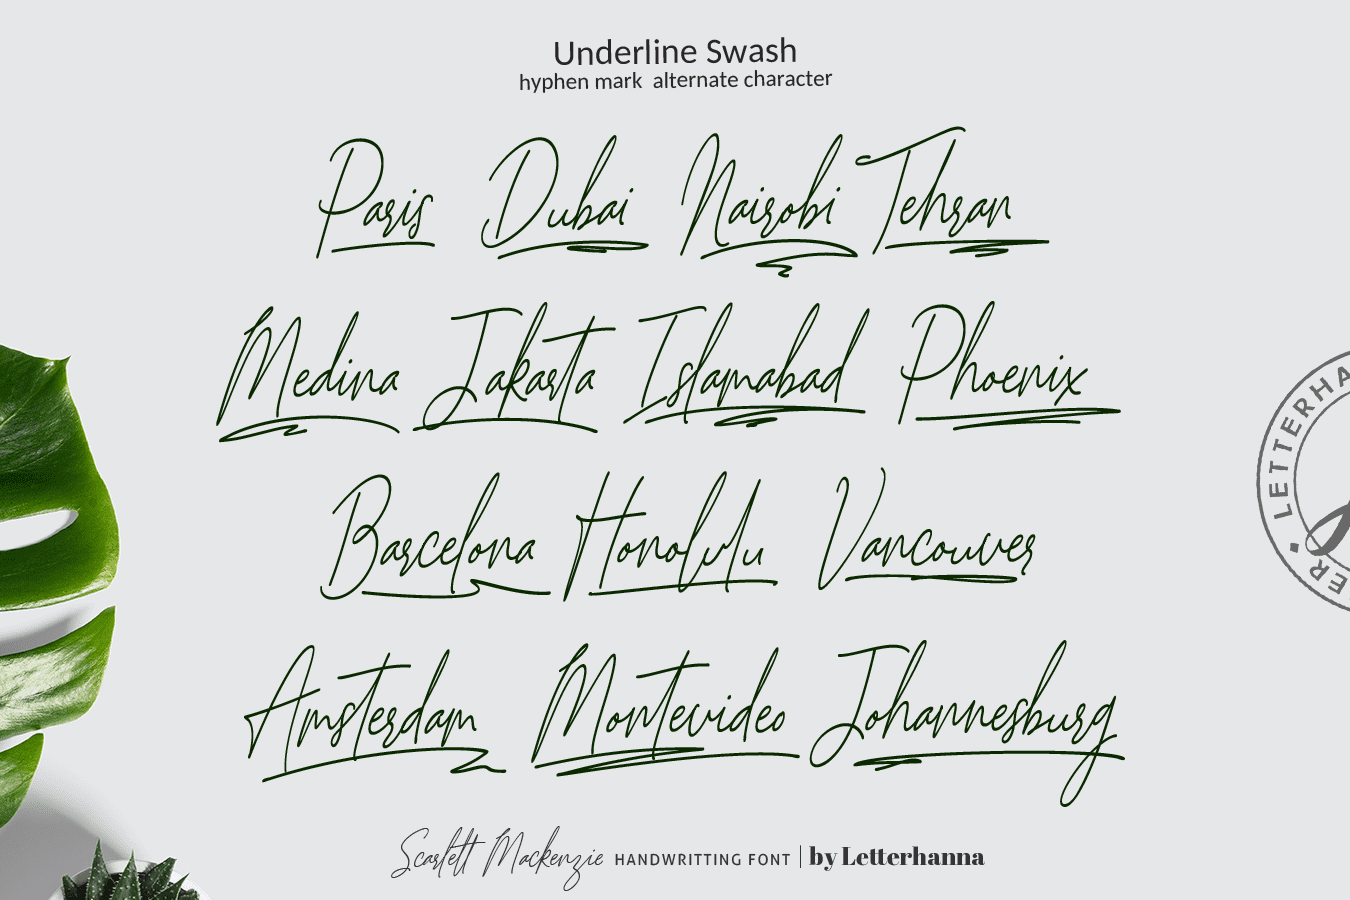 Underline Swash
hyphen mark alternate character
Paris Dubai Nairobi Tehran
Medina Jakarta Islamabad Phoenix
LETTERHA
ER
Barcelona Honolulu Vancouver
Amsterdam Montevideo Johannesburg
Scarlett Mackenzie HANDWRITTING FONT | by Letterhanna